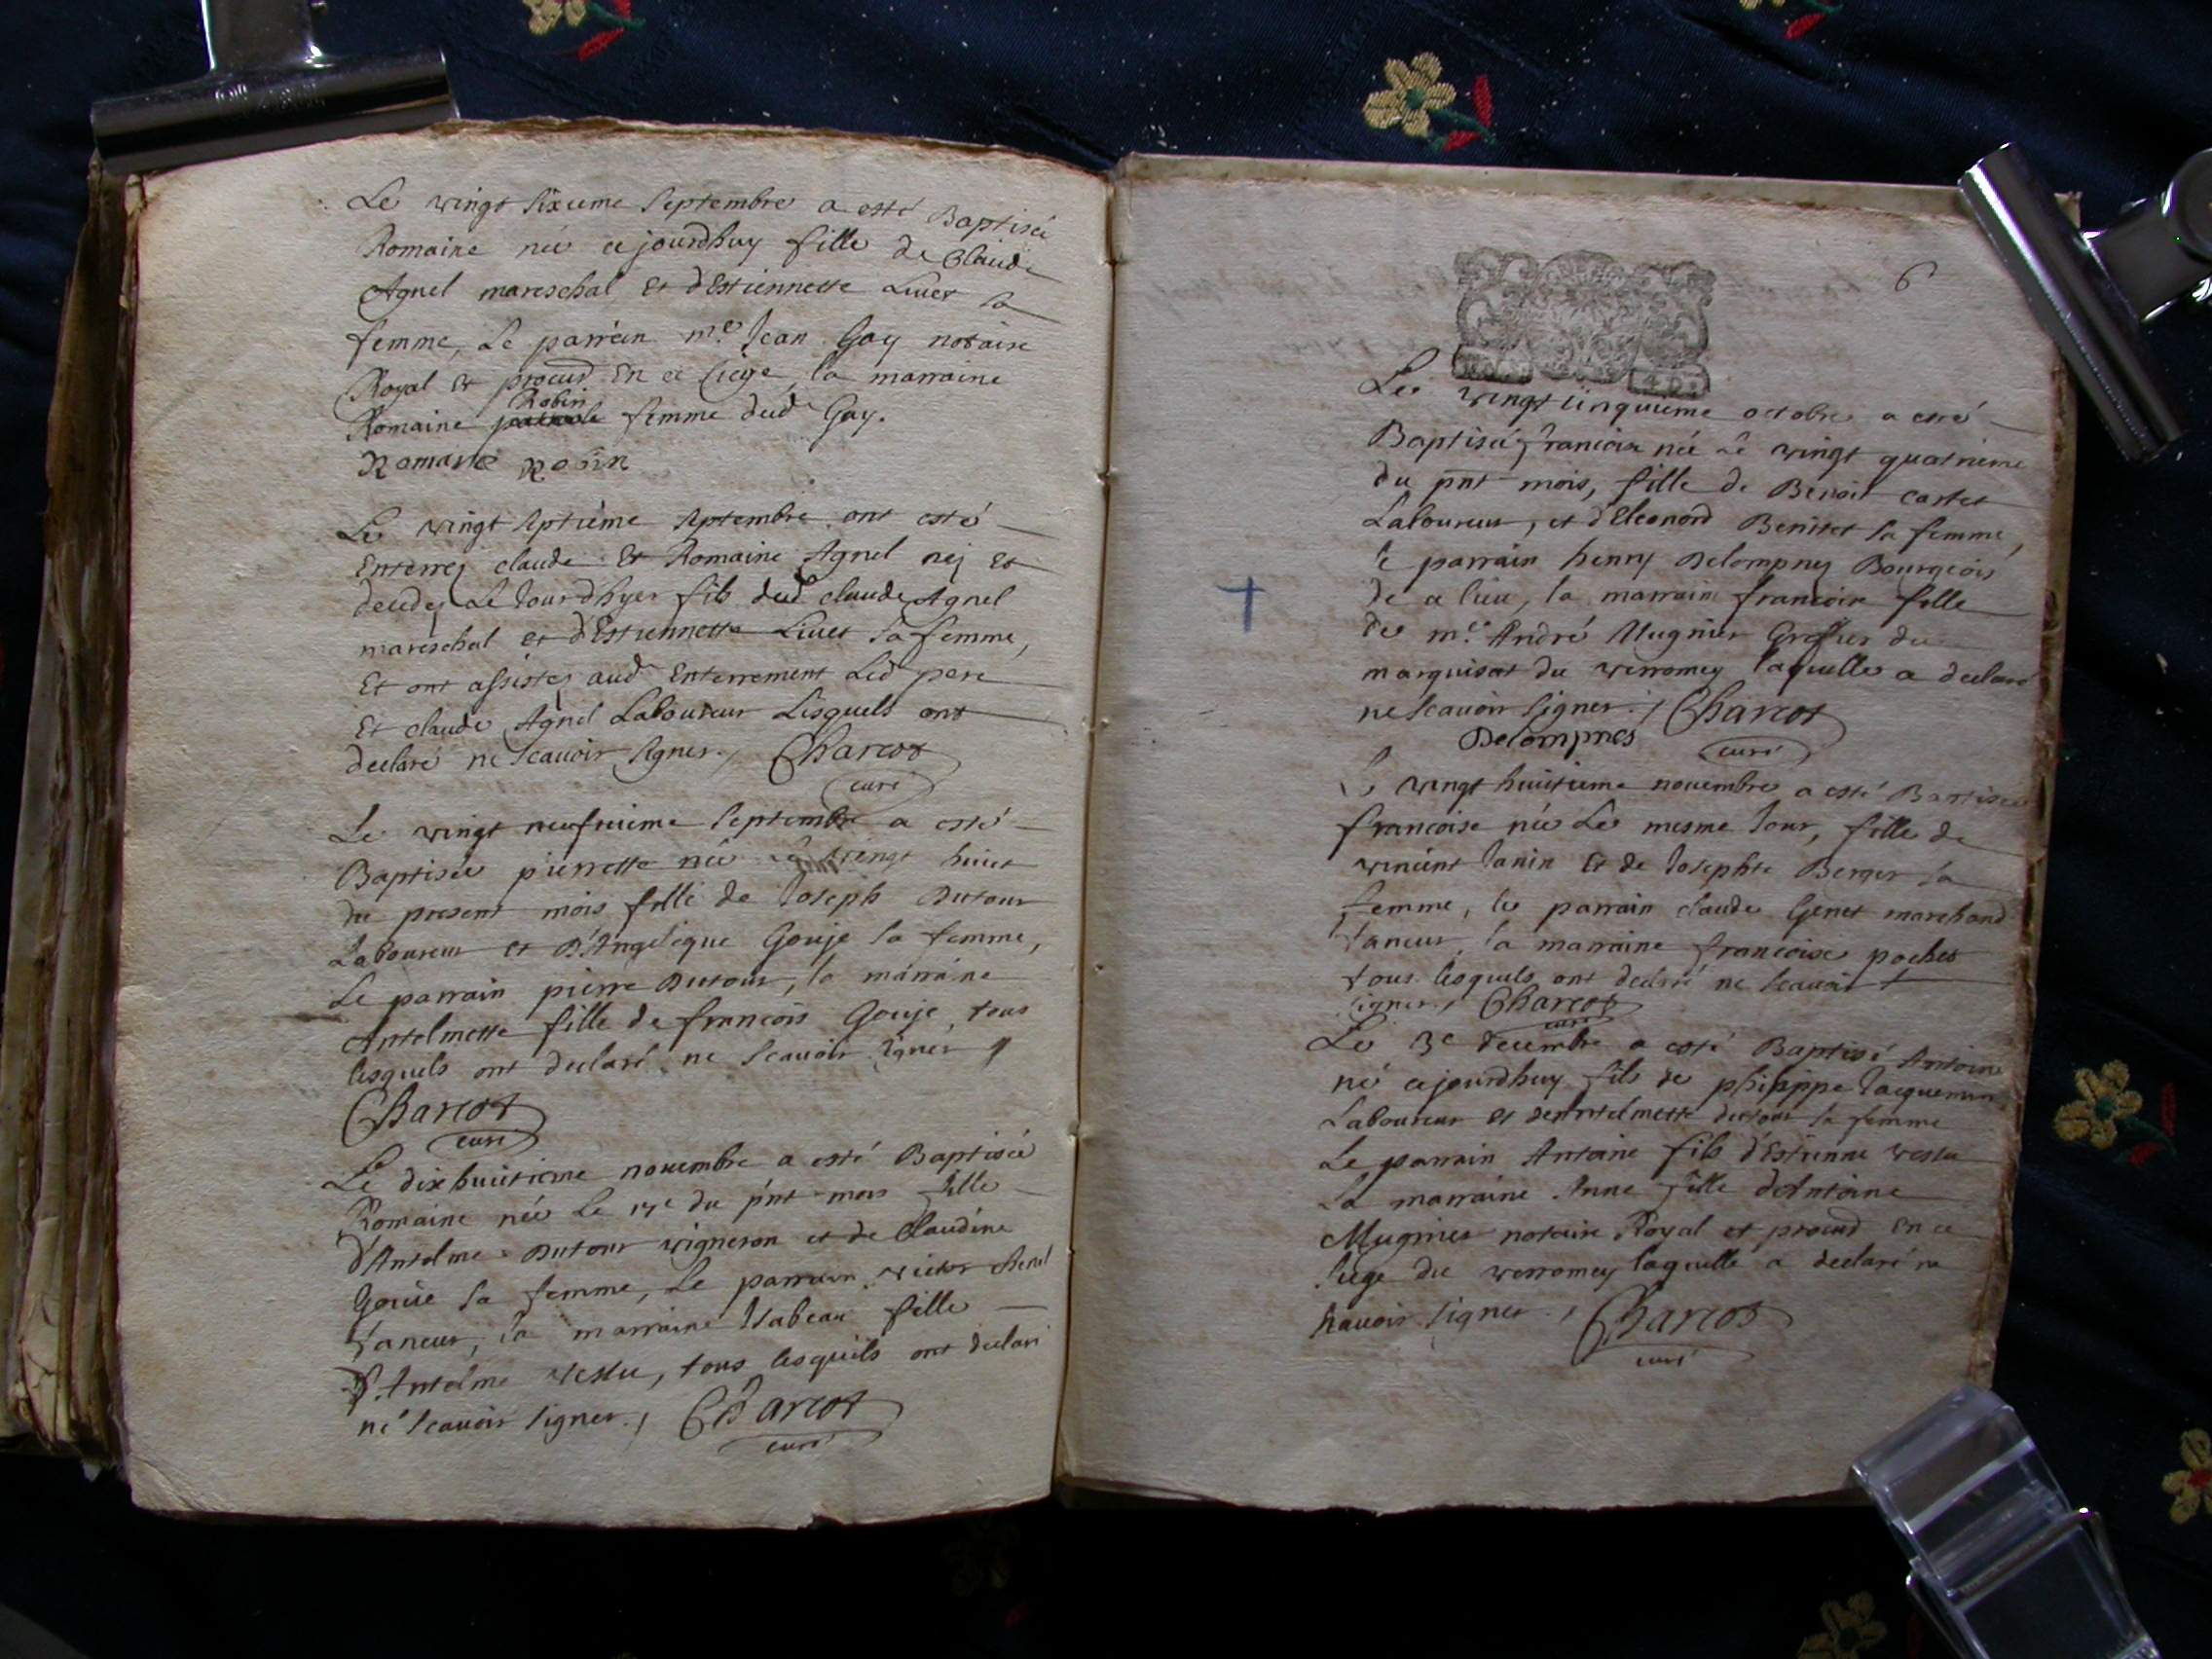 Le vingt sixieme septembre a esté Baptisée
Romaine née ce jourdhuy fille de Claude
Agnel mareschal Et d'Estiennette Livet sa
femme, Le parrain m.e Jean Gay notaire
Royal Et procur.d En ce siege, la marraine
Robin
Romaine femme dud. Gay.
Romane Robin
Le vingt septième septembre ont esté
Enterrez claude Et Romaine Agnel nez Et
decedez Le Jourdhyer fils dud. claude Agnel
mareschal et d'Estiennette Livet sa femme,
Et ont assistez aud. Enterrement Led. pere
Et claude Agnel Laboureur Lesquels ont
declaré ne scavoir signer./ Charcot
curé
Le vingt neufvieme septembre a esté
Baptisée pierrette née Le vingt huict
du present mois fille de Joseph Dutour
Laboureur et D'Angelique Gouje sa femme,
Le parrain pierre Dutour, la marraine
Antelmette fille de francois Gouje, tous
lesquels ont declaré ne scavoir signer
Charcot
curé
Le dixhuictieme novembre a esté Baptisée
Romaine née Le 17e du pnt mois fille
d'Antelme Dutour vigneron et de Claudine
Goujé sa femme, Le parrain victor
taneur, la marraine Isabeau fille
d'Antelme vestu, tous lesquels ont declaré
ne scavoir signer./ Charcot
curé
6
Le vingt cinquieme octobre a esté
Baptisée francoise née Le vingt quatrieme
du pnt mois, fille de Benoit cartet
Laboureur, et d'Eleonord Benitet sa femme,
le parrain henry Delompnes Bourgeois
de ce lieu, la marraine francoise fille
de m.e André Mugnier Greffier du
marquisat du verromey laquelle a declaré
ne scavoir signer./ Charcot
Delompnes curé
Le vingt huictieme novembre a esté Baptisée
francoise née Le mesme Jour, fille de
vincent Janin Et de Josephte Berger sa
femme, le parrain claude Genet marchand
taneur, la marraine francoise pochet
tous lesquels ont declaré ne scavoir
signer./ Charcot
curé
Le 3e decembre a esté Baptisé Antoine
né cejourdhuy fils de philippe Jacquemin
Laboureur et d'Antelmette dutour sa femme
Le parrain Antoine fils d'Estienne vestu
La marraine Anne fille d'Antoine
Mugnier notaire Royal et procur.d en ce
siege du verromey laquelle a declaré ne
scavoir signer./ Charcot
curé